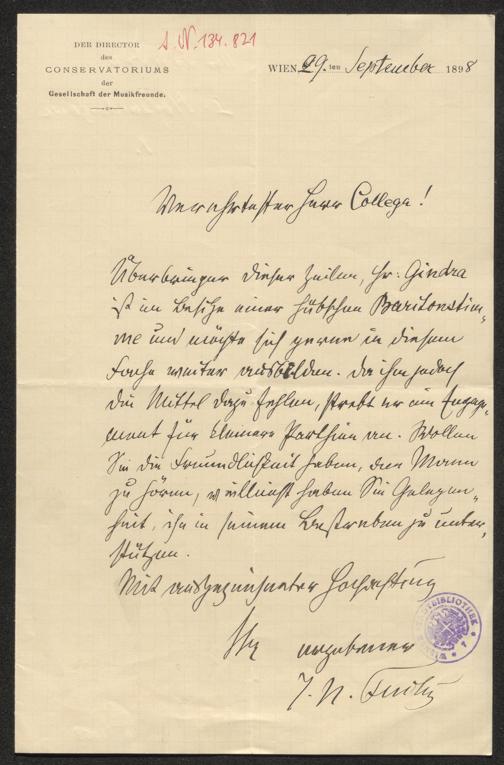 DER DIRECTOR
des
CONSERVATORIUMS
der
Gesellschaft der Musikfreunde.
I. N. 134.821
WIEN, 29. ten September 1898
Verehrtester Herr Collega!
Überbringer dieser Zeilen, Hr: Gindra
ist im Besitze einer hübschen Baritonstim-
me und möchte sich gerne in diesem
Fache weiter ausbilden. Da ihm jedoch
die Mittel dazu fehlen, strebt er ein Engage-
ment für kleinere Parthien an. Wollen
Sie die Freundlichkeit haben, den Mann
zu hören, vielleicht haben Sie Gelegen-
heit, ihn in seinem Bestreben zu unter-
stützen.
Mit ausgezeichneter Hochachtung
Ihr ergebener
J. N. Fuchs
STADTBIBLIOTHEK